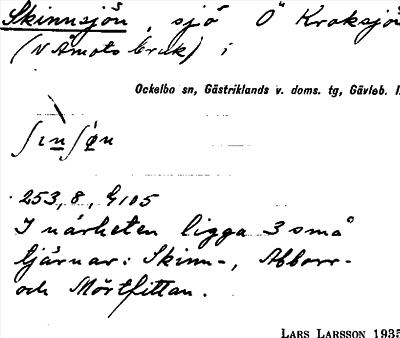 Skinnsjön, sjö Ö Kroksjön
(N Åmots bruk) i
Ockelbo sn, Gästriklands v. doms. tg, Gävleb. l.
ʃınʃøn
253, 8, G105
I närheten ligga 3 små
tjärnar: Skinn-, Abborr-
och Mörtfittan.
LARS LARSSON 1935